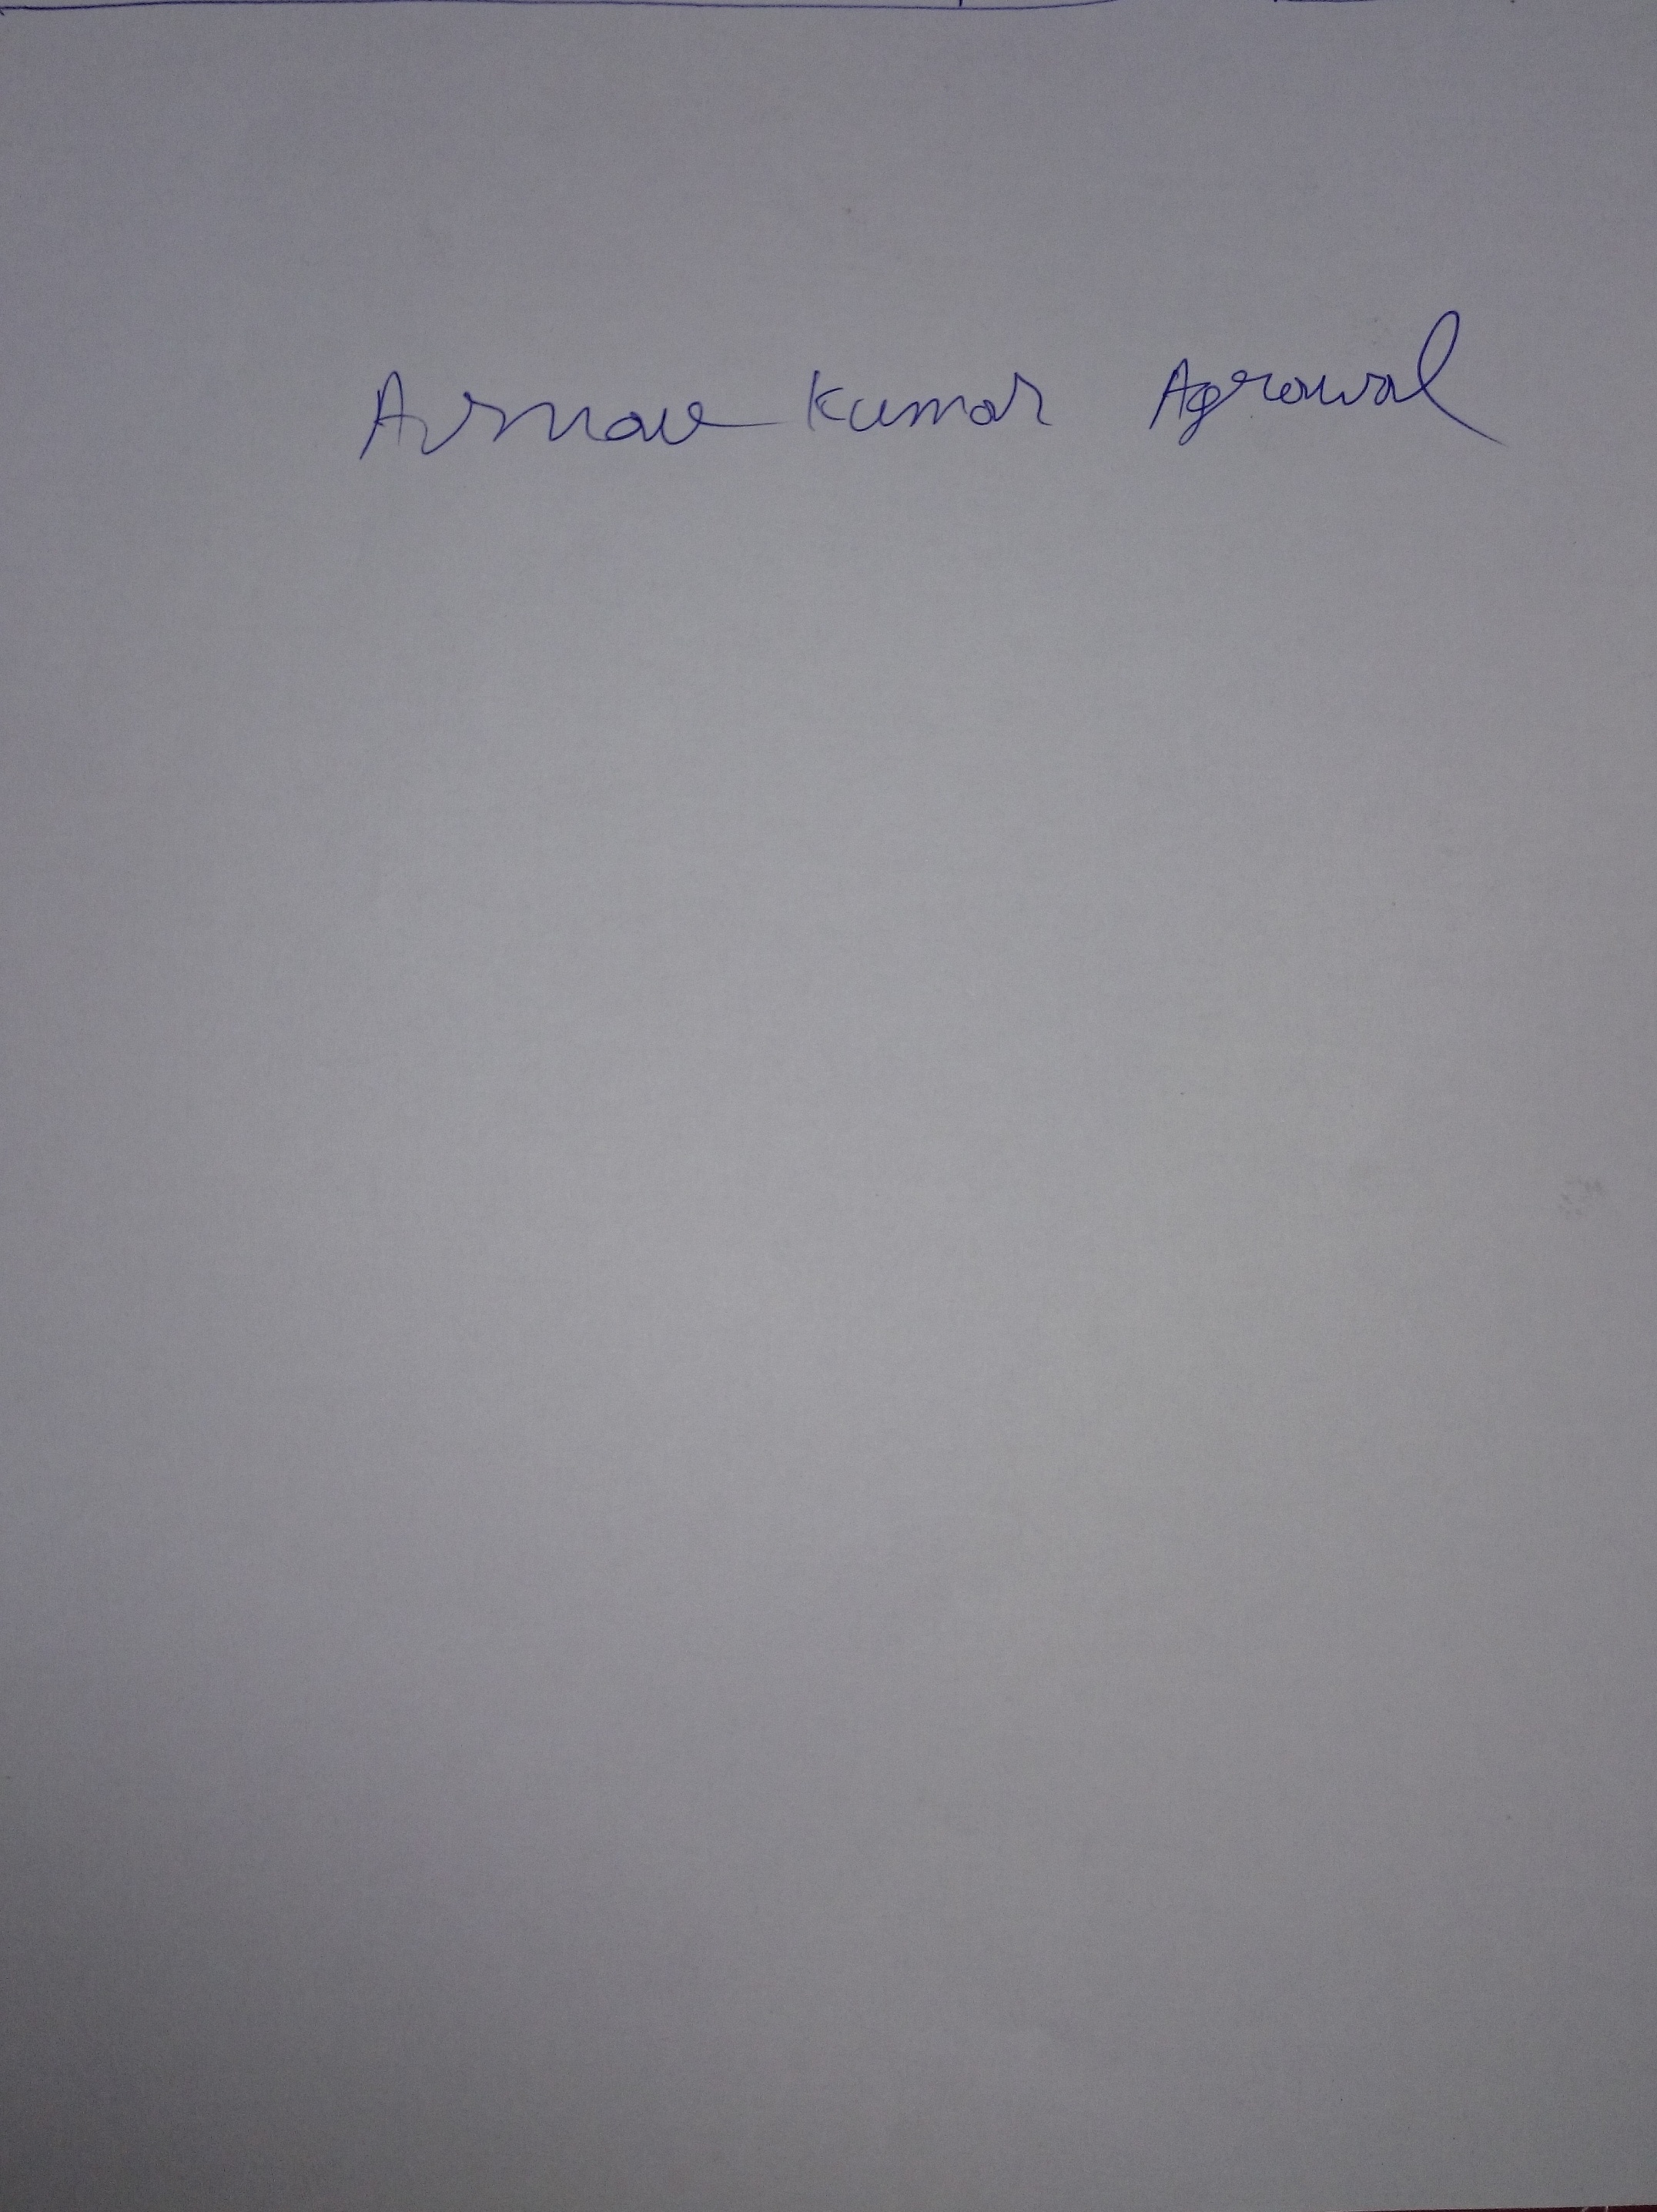 Arnav Kumar Agrawal